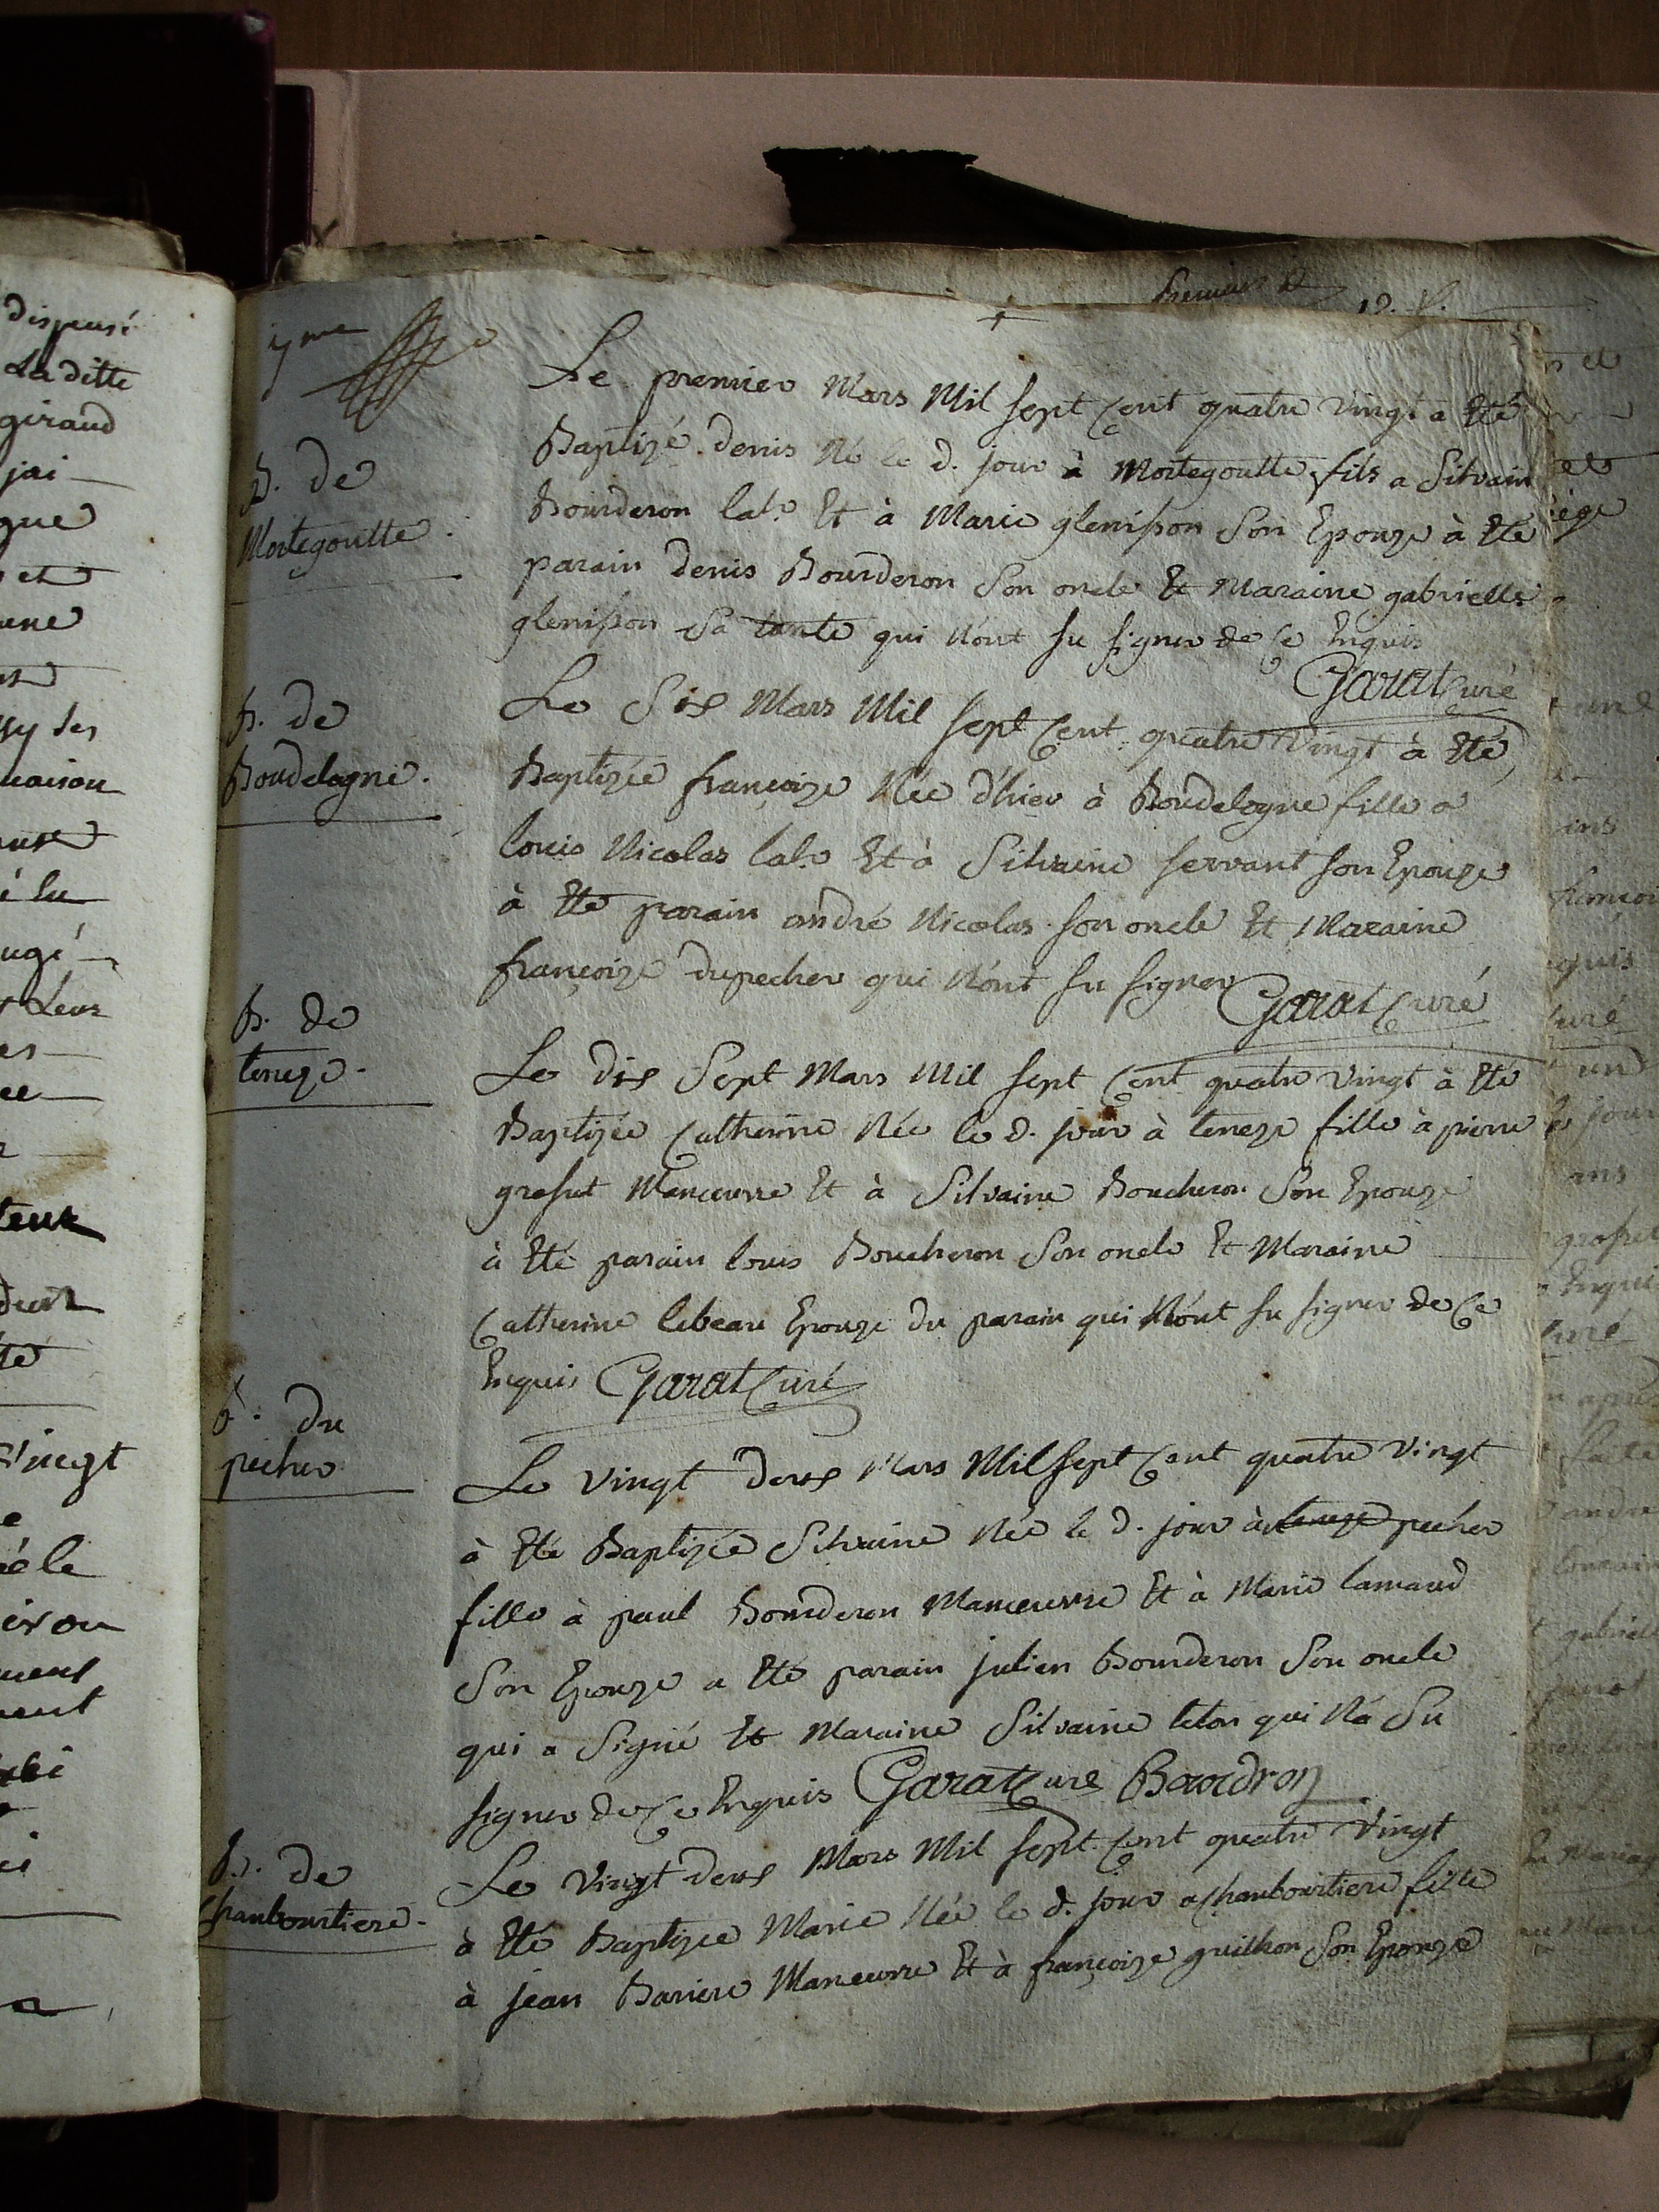 dispensé
La ditte
giraud
jai
que
et
une
sy les
maison
Leur
teur
vingt
7me
B. de
Mortegoutte.
Le premier Mars Mil sept Cent quatre vingt a Eté
Baptizé denis Né le d. jour à Mortegoutte fils a Silvain
Bourderon labr Et à Marie glenisson Son Epouze à Eté
parain denis Bourderon Son oncle Et Maraine gabrielle
glenisson Sa tante qui N'ont su signer de Ce Enquis
Garat Curé
B. de
Boudelogne.
Le Six Mars Mil sept Cent quatre Vingt à Eté
Baptizée françoize Née d'hier à Boudelogne fille a
louis Nicolas labr Et à Silvaine servant son Epouze
à Eté parain andré Nicolas son oncle Et Maraine
françoize dupecher qui N'ont su signer Garat Curé
B. de
teneze.
Le dix Sept Mars Mil sept Cent quatre vingt à Eté
Baptizée Catherine Née le d. jour à teneze fille à pierre
grosset Manœuvre Et à Silvaine Boucheron Son Epouze
à Eté parain louis Boucheron Son oncle Et Maraine
Catherine lebeau Epouze du parain qui N'ont su signer de Ce
Enquis Garat Curé
B. du
pecher
Le vingt deux Mars Mil sept Cent quatre vingt
à Eté Baptizée Silvaine Née le d. jour à teneze pecher
fille à paul Bourderon Manœuvre Et à Marie lamaud
Son Epouze a Eté parain julien Bourderon Son oncle
qui a Signé Et Maraine Silvaine leton qui N'a Su
signer de Ce Enquis Garat Curé Bourdron
B. de
Chanbourtiere.
Le Vingt deux Mars Mil sept Cent quatre Vingt
à Eté Baptizée Marie Née le d. jour a Chanbourtiere fille
à jean Bariere Manœuvre Et à françoize guilhon Son Epouze